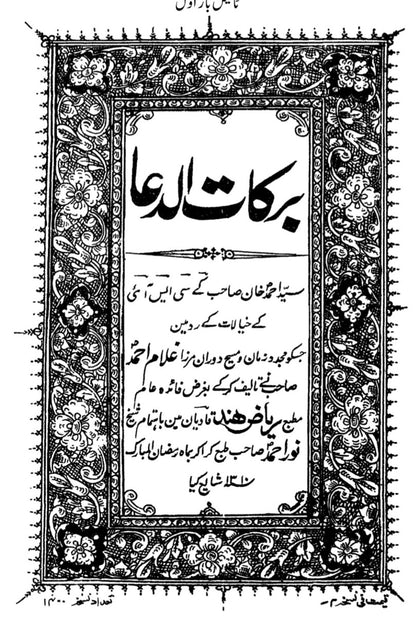 ٹائٹل بار اول
برکات الدعا
سید احمد خان صاحب کے سی ایس آئی
کے خیالات کے رد مین
جسکو مجدد زمان و مسیح دوران مرزا غلام احمد
صاحب نے تالیف کر کے بغرض فائدہ عام
مطبع ریاض ہند قادیان مین باہتمام شیخ
نور احمد صاحب طبع کرا کر بماہ رمضان المبارک
۱۳۱۰ شایع کیا
قیمت فی نسخہ ۲؍
تعداد نسخہ ۱۴۰۰